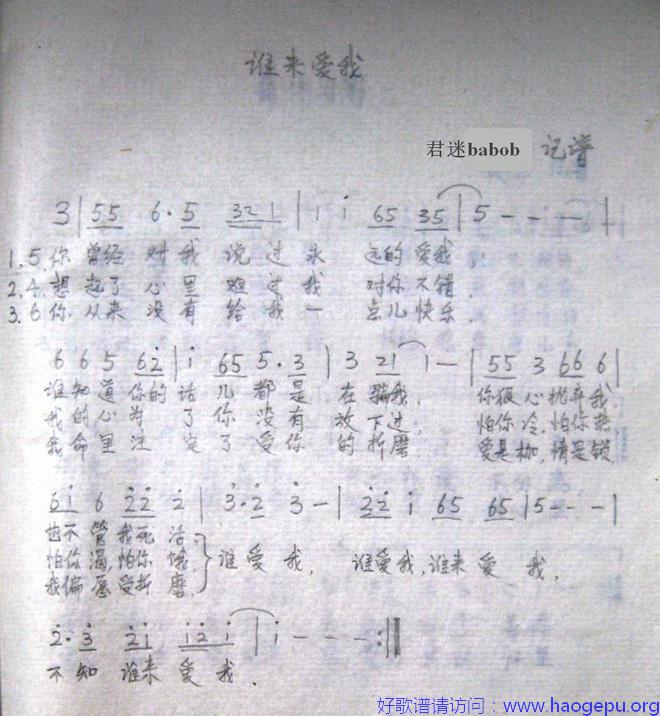 谁来爱我
君迷babob 记谱
3 | 55 6·5 321 | 1 i 65 35 | 5 - - - |
1.5.你曾经对我说过永远的爱我,
2.4.想起了心里难过我对你不错.
3.6你从来没有给我一点儿快乐.
6 6 5 62̇ | i 65 5·3 | 3 21 1 - | 55 3 66 6 |
谁知道你的话儿都是在骗我, 你狠心抛弃我
我的心为了你没有放下过, 怕你冷,怕你热
我命里注定了受你的折磨 爱是枷,情是锁
6i 6 2̇2̇ 2̇ | 3̇·2̇ 3̇ - | 2̇2̇ i 65 65 | 5 - - - |
也不管我死活.
怕你渴怕你饿 } 谁爱我, 谁爱我,谁来爱我.
我偏愿受折磨.
2̇·3̇ 2̇i i2̇i | i - - - :||
不知谁来爱我.
好歌谱请访问：www.haogepu.org